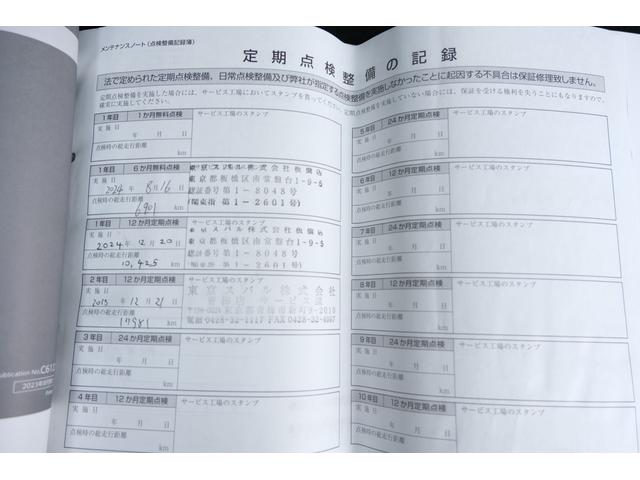 メンテナンスノート（点検整備記録簿）
定期点検整備の記録
法で定められた定期点検整備、日常点検整備及び弊社が指定する点検整備を実施しなかったことに起因する不具合は保証修理致しません。
定期点検整備を実施した場合には、サービス工場においてスタンプを貰ってください。定期点検整備を実施していない場合には、保証を受ける権利を失うこともなりますので、
確実に実施してください。
1年目 1か月無料点検 サービス工場のスタンプ
実施日
年 月 日
点検時の総走行距離
km
1年目 6か月無料点検 サービス工場のスタンプ
実施日
2024年 8月16日
点検時の総走行距離
6901 km
東京スバル株式会社板橋店
東京都板橋区南常盤台1-9-5
認証番号第1-8048号
(関東指第1-2601号)
1年目 12か月定期点検 サービス工場のスタンプ
実施日
2024年 12月20日
点検時の総走行距離
10,425 km
東京スバル株式会社板橋店
東京都板橋区南常盤台1-9-5
認証番号第1-8048号
(関東指第1-2601号)
2年目 12か月定期点検 サービス工場のスタンプ
実施日
12月21日
点検時の総走行距離
17981 km
東京スバル株式会社
サービス課
TEL 0428-32-1117 FAX 0428-32-4597
3年目 24か月定期点検 サービス工場のスタンプ
実施日
年 月 日
点検時の総走行距離
km
4年目 12か月定期点検 サービス工場のスタンプ
実施日
年 月 日
点検時の総走行距離
km
5年目 24か月定期点検 サービス工場のスタンプ
実施日
年 月 日
点検時の総走行距離
km
6年目 12か月定期点検 サービス工場のスタンプ
実施日
年 月 日
点検時の総走行距離
km
7年目 24か月定期点検 サービス工場のスタンプ
実施日
年 月 日
点検時の総走行距離
km
8年目 12か月定期点検 サービス工場のスタンプ
実施日
年 月 日
点検時の総走行距離
km
9年目 24か月定期点検 サービス工場のスタンプ
実施日
年 月 日
点検時の総走行距離
km
10年目 12か月定期点検 サービス工場のスタンプ
実施日
年 月 日
点検時の総走行距離
km